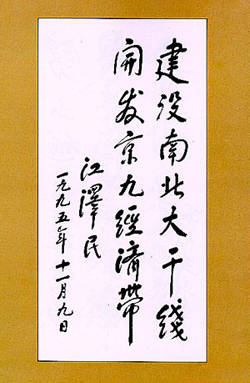 建设南北大干线
開发京九經濟帶
江泽民
一九九五年十一月九日